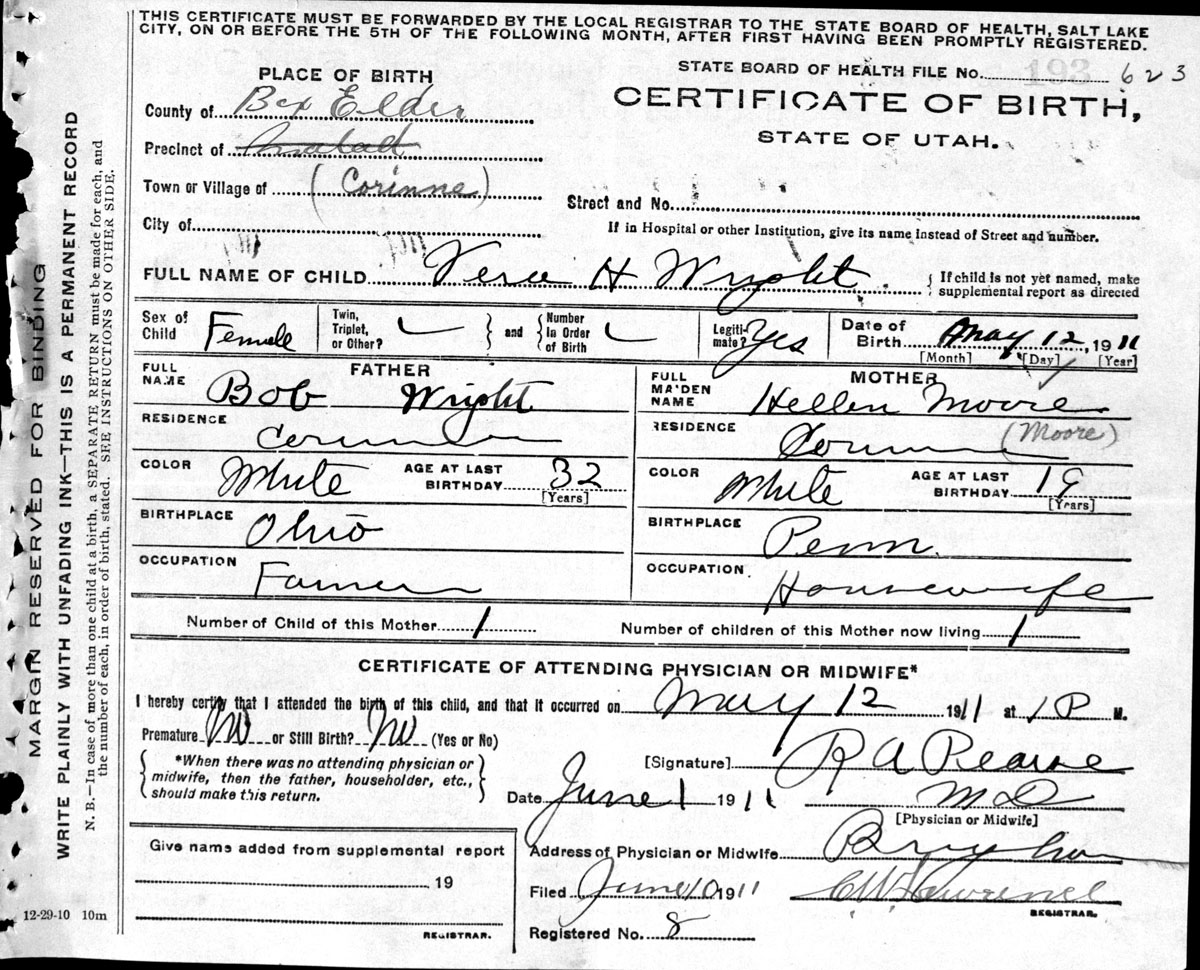 THIS CERTIFICATE MUST BE FORWARDED BY THE LOCAL REGISTRAR TO THE STATE BOARD OF HEALTH, SALT LAKE
CITY, ON OR BEFORE THE 5TH OF THE FOLLOWING MONTH, AFTER FIRST HAVING BEEN PROMPTLY REGISTERED.
PLACE OF BIRTH
STATE BOARD OF HEALTH FILE No. 623
County of Box Elder
CERTIFICATE OF BIRTH,
STATE OF UTAH.
Precinct of Malad
Town or Village of (Corinne)
Street and No.
City of
If in Hospital or other Institution, give its name instead of Street and number.
FULL NAME OF CHILD Vera H Wright { If child is not yet named, make
supplemental report as directed
Sex of Child Female
Twin, Triplet, or Other?
} and {
Number in Order of Birth
Legitimate? Yes
Date of Birth May 12, 1911
[Month] [Day] [Year]
FATHER
FULL NAME Bob Wright
RESIDENCE Corinne
COLOR White AGE AT LAST BIRTHDAY 32 [Years]
BIRTHPLACE Ohio
OCCUPATION Farmer
MOTHER
FULL MAIDEN NAME Hellen Moore
(Moore)
RESIDENCE Corinne
COLOR White AGE AT LAST BIRTHDAY 19 [Years]
BIRTHPLACE Penn.
OCCUPATION Housewife
Number of Child of this Mother 1 Number of children of this Mother now living 1
CERTIFICATE OF ATTENDING PHYSICIAN OR MIDWIFE*
I hereby certify that I attended the birth of this child, and that it occurred on May 12 1911 at 1 P M.
Premature No or Still Birth? No (Yes or No)
{ *When there was no attending physician or
midwife, then the father, householder, etc.,
should make this return. }
[Signature] R A Pearse
Date June 1 1911 M D
[Physician or Midwife]
Give name added from supplemental report
19
REGISTRAR.
Address of Physician or Midwife Brigham
Filed June 10 1911 C W Lawrence
REGISTRAR.
Registered No. 8
12-29-10 10m
MARGIN RESERVED FOR BINDING
WRITE PLAINLY WITH UNFADING INK—THIS IS A PERMANENT RECORD
N. B.—In case of more than one child at a birth, a SEPARATE RETURN must be made for each, and
the number of each, in order of birth, stated. SEE INSTRUCTIONS ON OTHER SIDE.